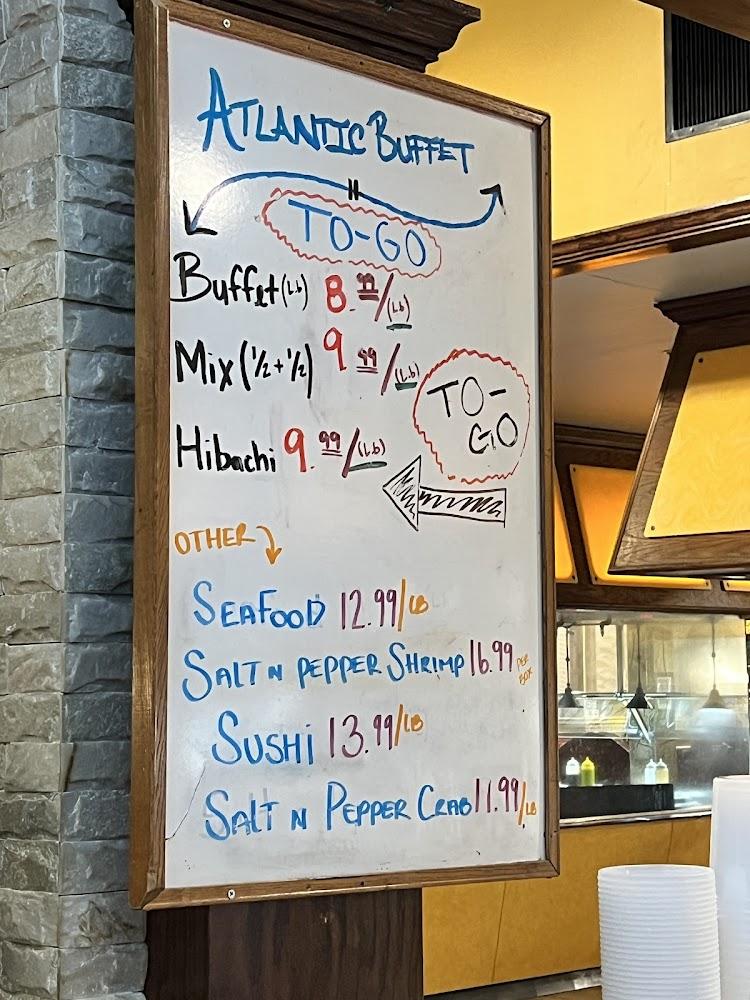 ATLANTIC BUFFET
TO-GO
Buffet (Lb) 8.99/(Lb)
Mix (1/2 + 1/2) 9 99/(Lb)
Hibachi 9.99/(Lb)
TO-
GO
OTHER
SEAFOOD 12.99/LB
SALT N PEPPER SHRIMP 16.99 PER
BOX
SUSHi 13.99/LB
SALT N PEPPER CRAB 11.99/LB